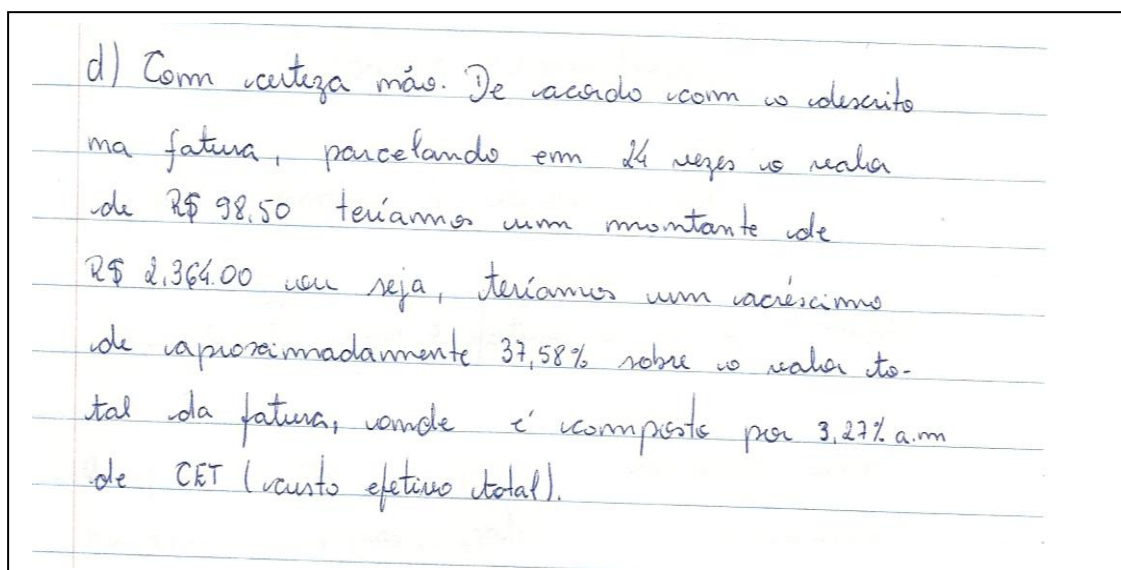 d) Com certeza não. De acordo com o descrito
na fatura, parcelando em 24 vezes o valor
de R$ 98,50 teríamos um montante de
R$ 2.364.00 ou seja, teríamos um acréscimo
de aproximadamente 37,58% sobre o valor to-
tal da fatura, onde é composto por 3,27% a.m
de CET (custo efetivo total).